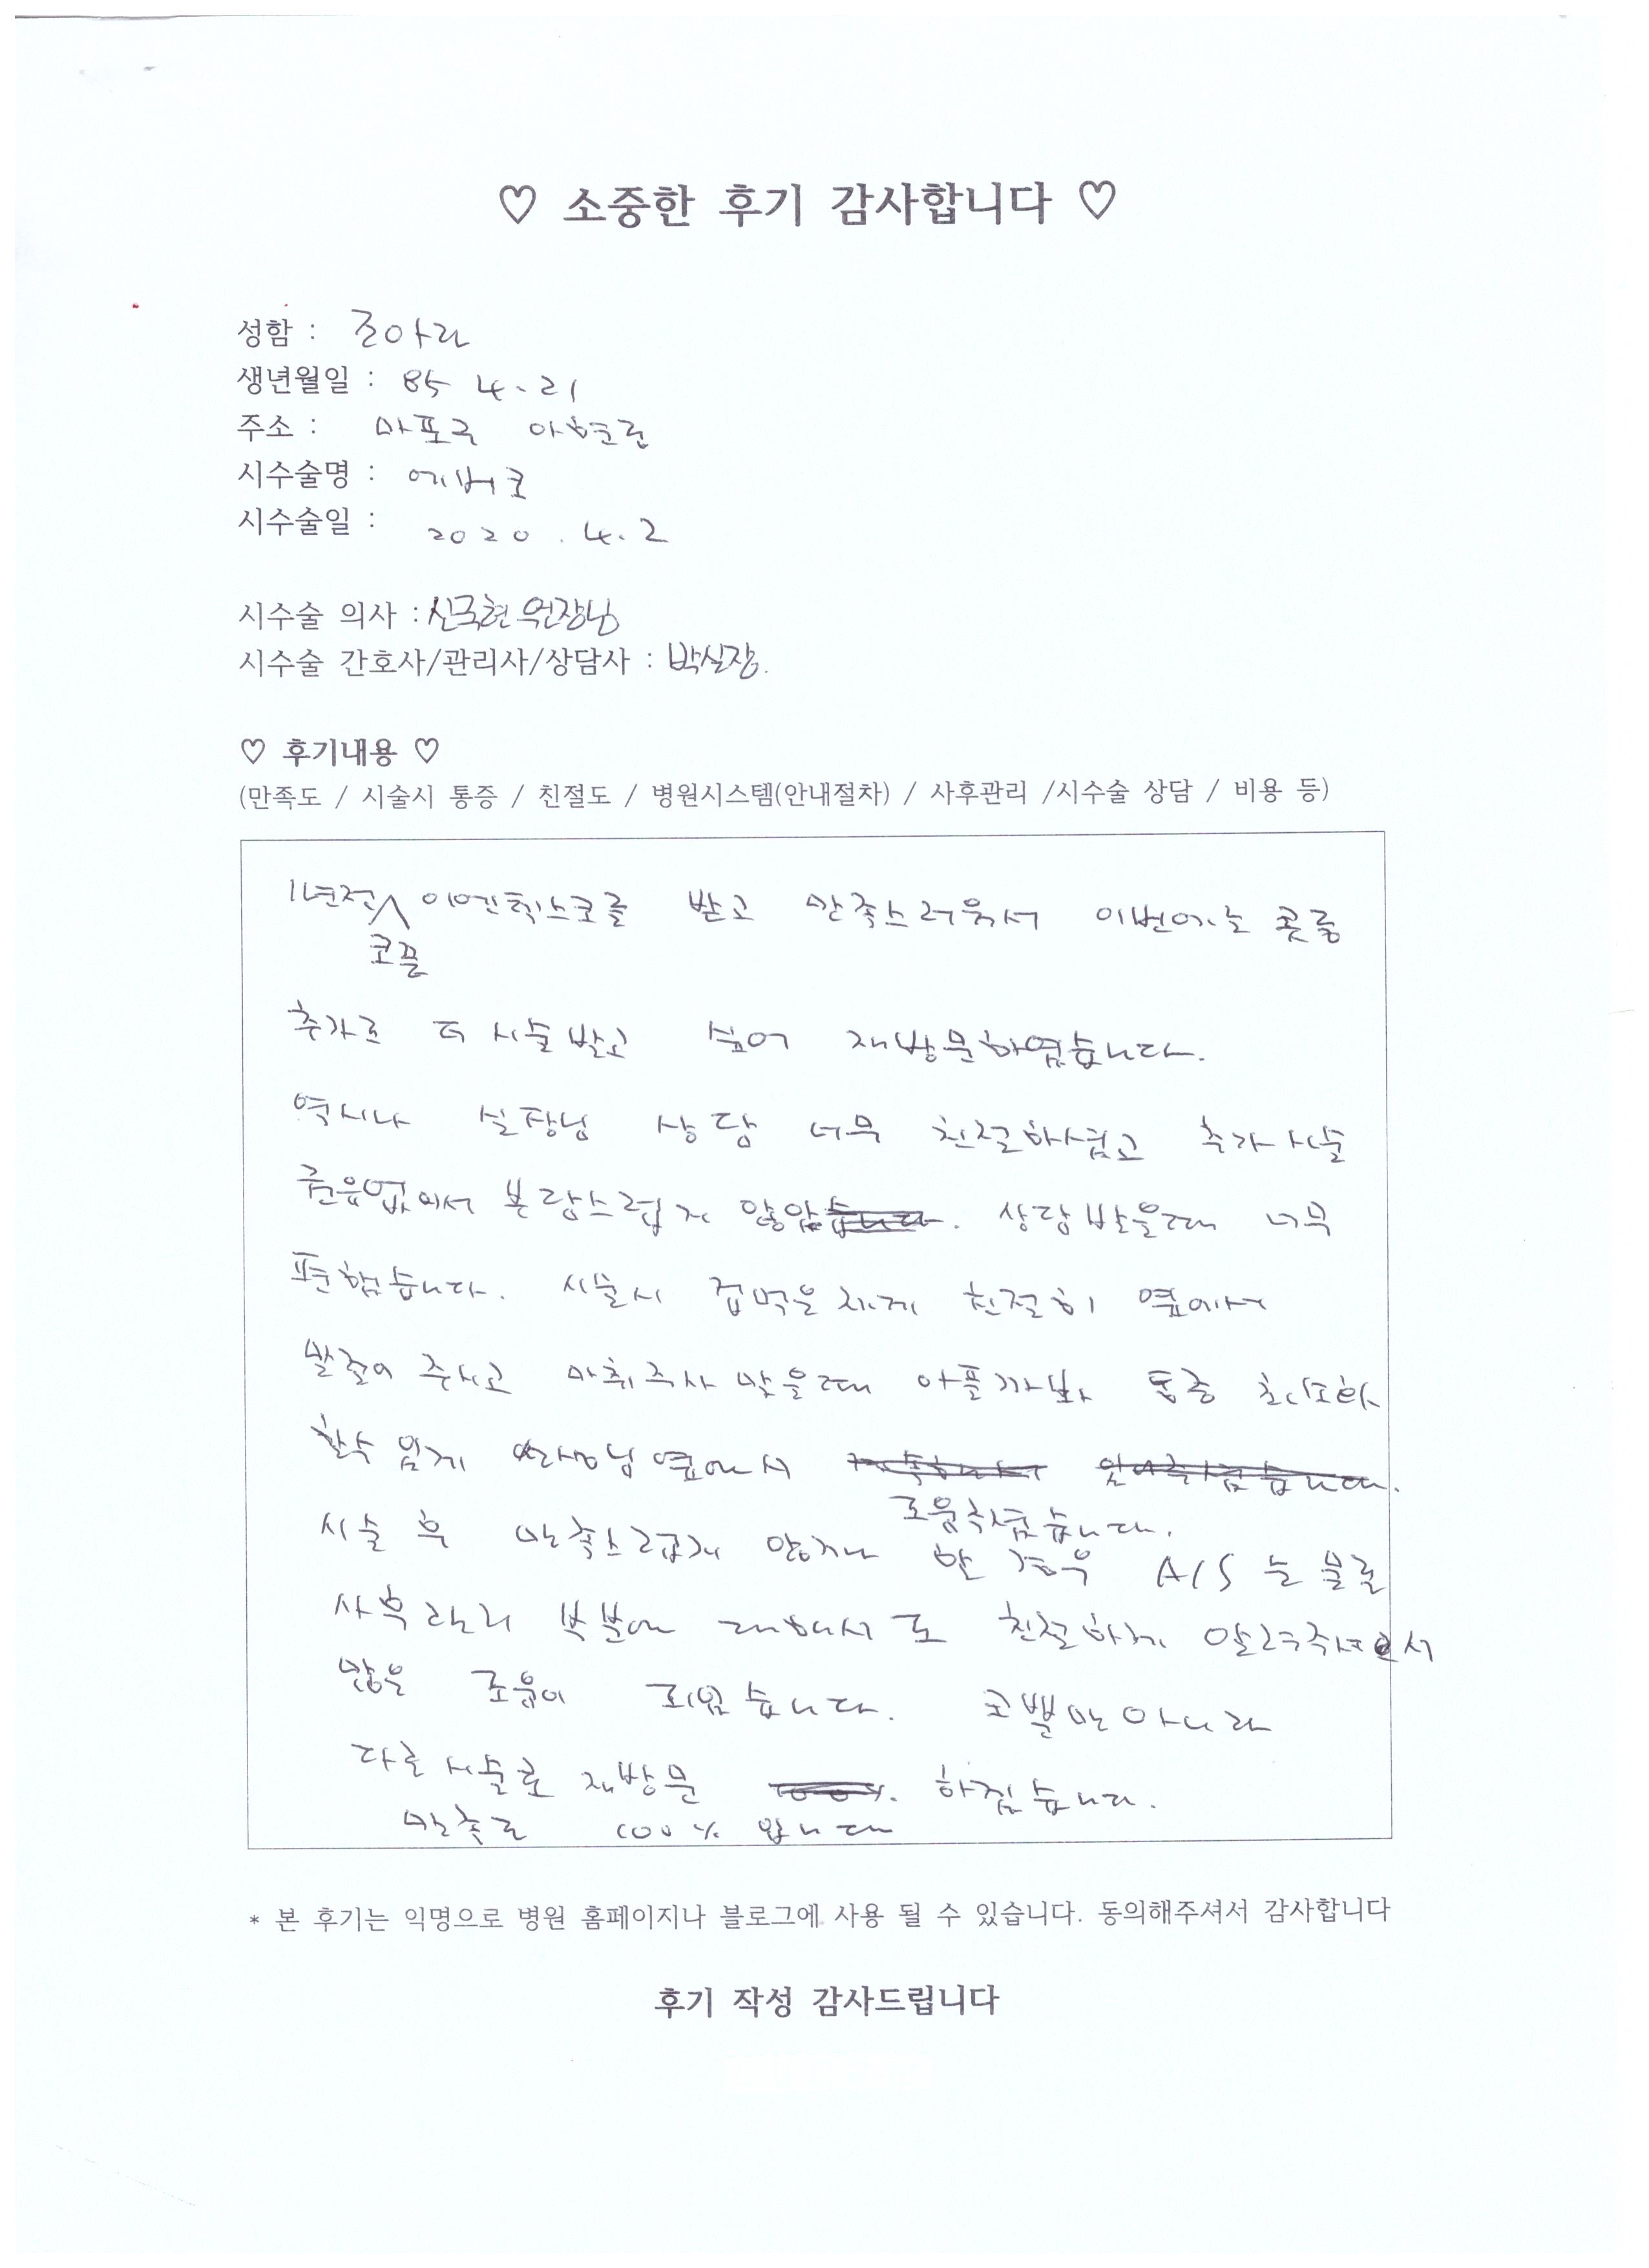 ♡ 소중한 후기 감사합니다 ♡
성함 : 조아라
생년월일 : 85 4.21
주소 : 마포구 아현동
시수술명 : 에버코
시수술일 : 2020.4.2
시수술 의사 : 신국현 원장님
시수술 간호사/관리사/상담사 : 박실장.
♡ 후기내용 ♡
(만족도 / 시술시 통증 / 친절도 / 병원시스템(안내절차) / 사후관리 /시수술 상담 / 비용 등)
1년전 이멘틱스코를 받고 만족스러워서 이번에는 콧등
코끝
추가로 더 시술받고 싶어 재방문하였습니다.
역시나 실장님 상담 너무 친절하셨고 추가 시술
권유없어서 부담스럽지 않았습니다. 상담받을때 너무
편했습니다. 시술시 겁먹은 저에게 친절히 옆에서
말걸어 주시고 마취주사 맞을때 아플까봐 통증 최소화
할수 있게 옆에서
도움주셨습니다.
시술 후 만족스럽지 않거나 한 경우 A/S 는 물론
사후관리 부분에 대해서도 친절하게 알려주셔서
많은 도움이 되었습니다. 코뿐만아니라
다른 시술로 재방문 하겠습니다.
만족도 100% 입니다
* 본 후기는 익명으로 병원 홈페이지나 블로그에 사용 될 수 있습니다. 동의해주셔서 감사합니다
후기 작성 감사드립니다